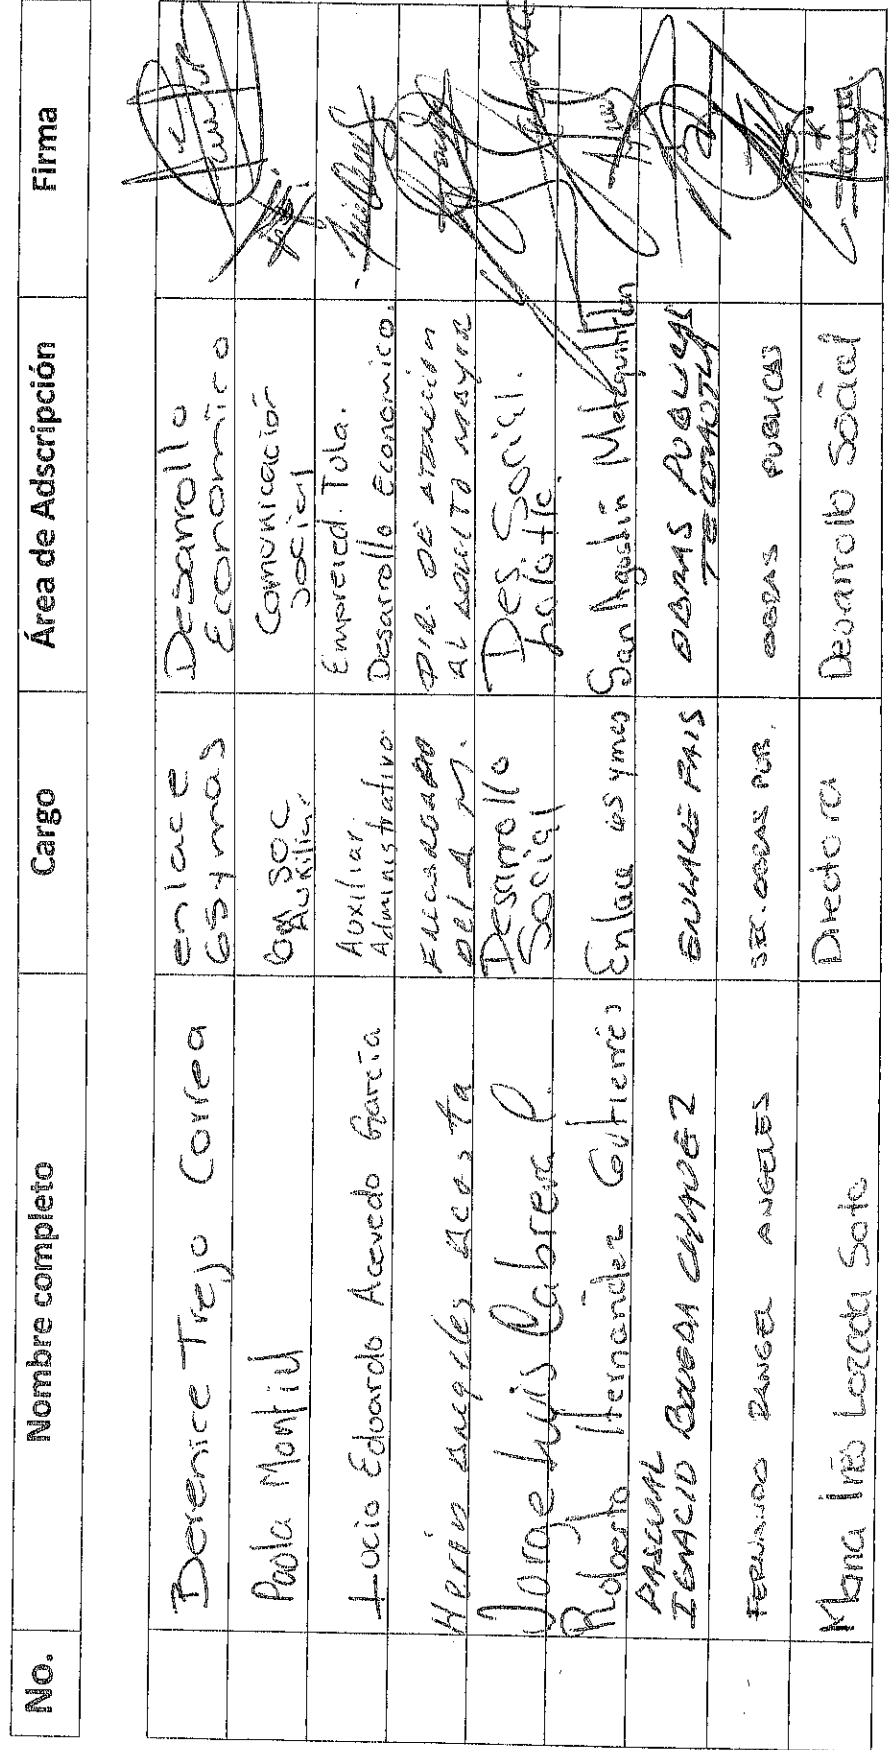 No. Nombre completo Cargo Área de Adscripción Firma
Berenice Trejo Correa enlace 65 y mas Desarrollo Economico
Paola Montiel Com SOC Auxiliar Comunicación Social
Lucio Eduardo Acevedo García Auxiliar Administrativo Empreied. Tula. Desarrollo Economico.
Angeles Acosta Encargado Del A M. DIR. DE ATENCION AL ADULTO MAYOR
Jorge Luis Cabrera P. Desarrollo Social Des. Social. Lolotla.
Roberto Hernández Gutierrez Enlace 65 y mas San Agustín Metzquititlan
PASCUAL IGNACIO CHAVEZ ENLACE FAIS OBRAS PUBLICAS
FERNANDO RANGEL ANGELES SEC. OBRAS PUB. OBRAS PUBLICAS
Maria Inés Lozada Soto Directora Desarrollo Social